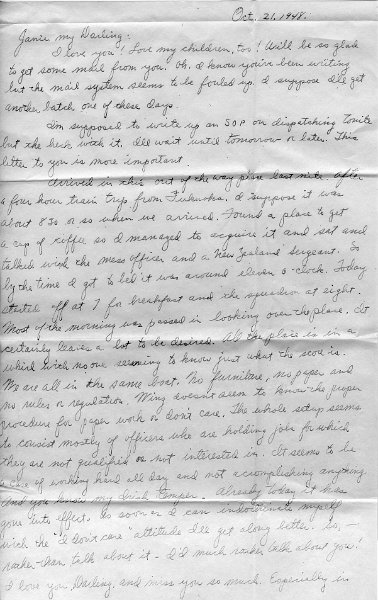 Oct. 21, 1948.
Janie my Darling:
I love you! Love my children, too! Will be so glad
to get some mail from you. Oh, I know you've been writing
but the mail system seems to be fouled up. I suppose I'll get
another batch one of these days.
I'm supposed to write up an SOP on dispatching tonite
but the heck with it, I'll wait until tomorrow or later. This
letter to you is more important.
Arrived in this out of the way place last nite after
a four hour train trip from Fukuoka. I suppose it was
about 830 or so when we arrived. Found a place to get
a cup of coffee so I managed to acquire it and sat and
talked with the mess officer and a New Zealand sergeant. So
by the time I got to bed it was around eleven o'clock. Today
started off at 7 for breakfast and the squadron at eight.
Most of the morning was passed in looking over the place. It
certainly leaves a lot to be desired. All the place is in a
whirl with no one seeming to know just what the score is.
We are all in the same boat. No furniture, no paper and
no rules or regulation. Wing doesn't seem to know the proper
procedure for paper work or don't care. The whole setup seems
to consist mostly of officers who are holding jobs for which
they are not qualified or not interested in. It seems to be
a case of working hard all day and not accomplishing anything
and you know my Irish temper. Already today it has
gone into effect. As soon as I can indoctrinate myself
with the "I don't care" attitude I'll get along better. So, —
rather than talk about it - I'd much rather talk about you!
I love you Darling, and miss you so much. Especially in